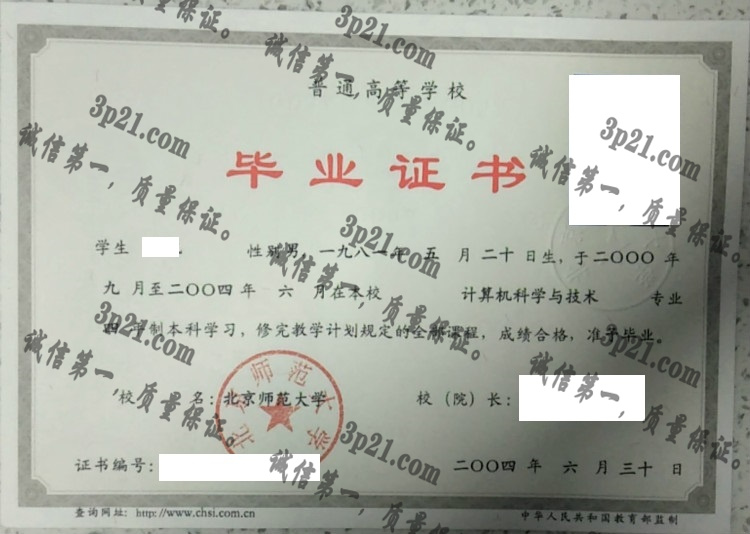 普通高等学校
毕业证书
学生 性别男 一九八一年 五 月二十日生，于二〇〇〇年
九 月至二〇〇四年 六 月在本校 计算机科学与技术 专业
四年制本科学习，修完教学计划规定的全部课程，成绩合格，准予毕业.
校 名：北京师范大学 校（院）长：
北京师范大学
证书编号： 二〇〇四年 六月三十日
查询网址：http://www.chsi.com.cn 中华人民共和国教育部监制
质量保证。
3p21.com
诚信第一，质量保证。
3p21.com
诚信第一，质量保证。
3p21.com
诚信第一，质量保证。
3p21.com
诚信第一，质量保证。
3p21.com
诚信第一，质量保证。
3p21.com
诚信第一，质量保证。
3p21.com
诚信第一，质量保证。